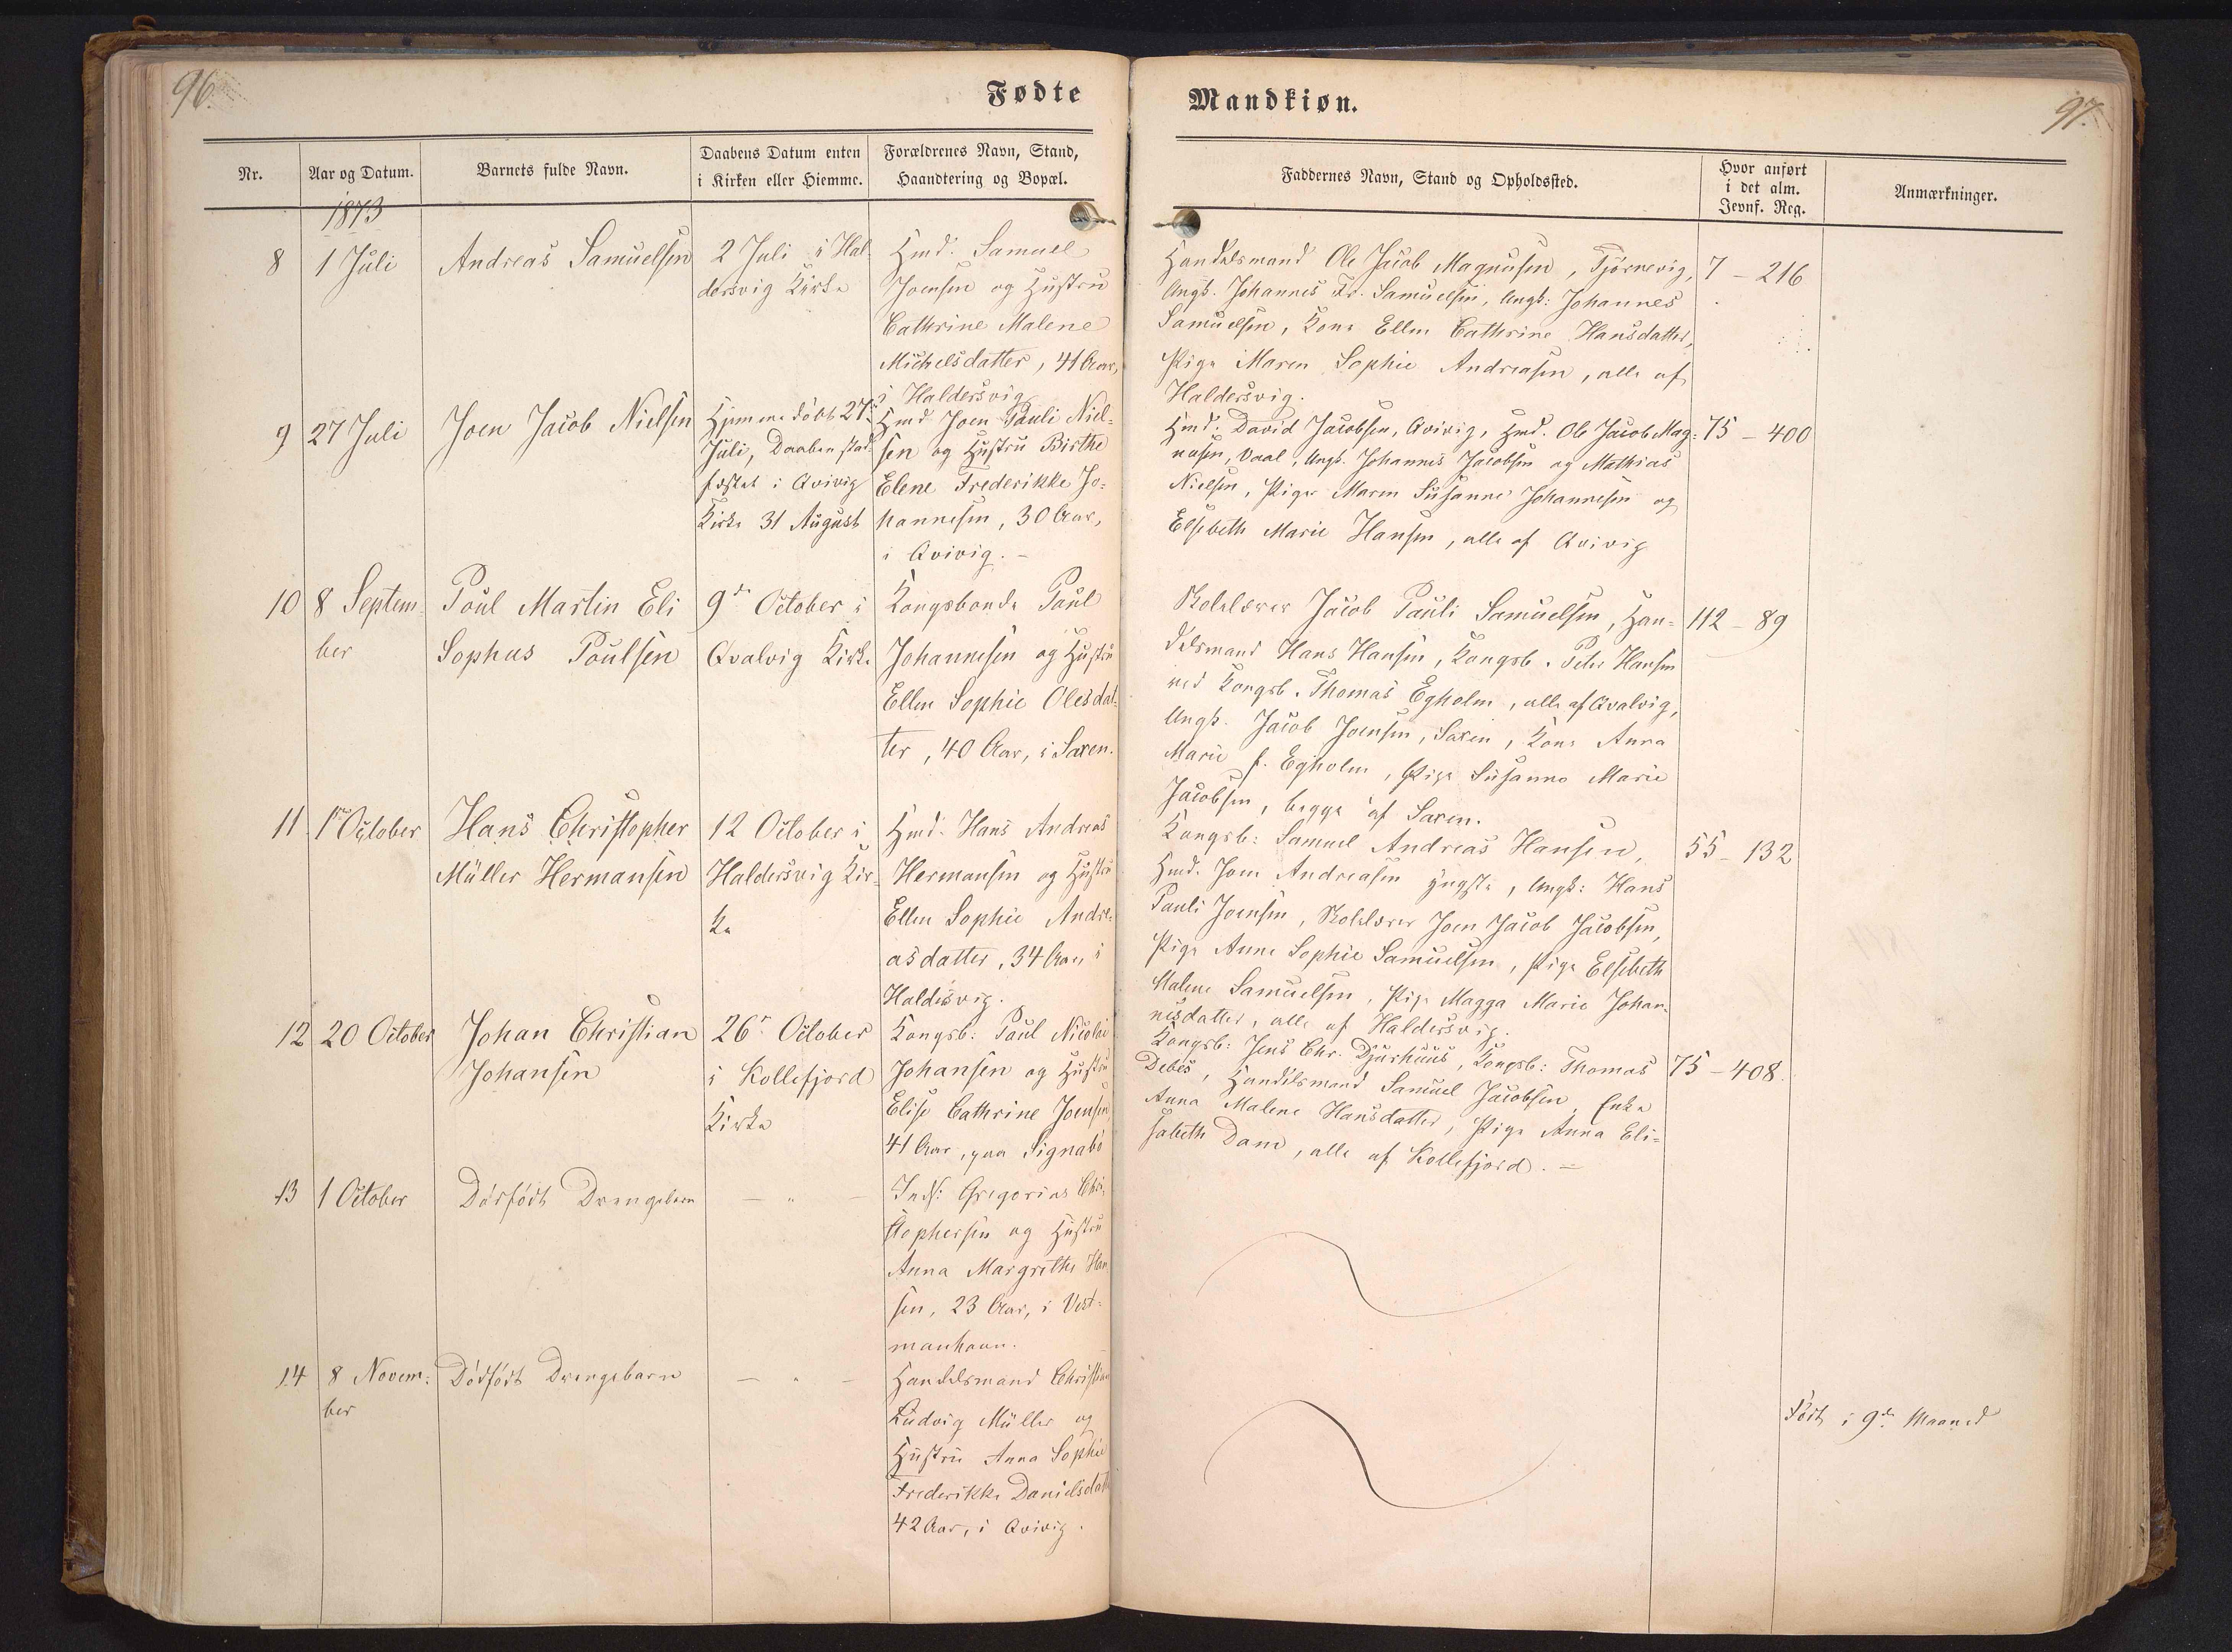 96.
Fødte
Nr.
Aar og Datum.
Barnets fulde Navn.
Daabens Datum enten
i Kirken eller Hiemme.
Forældrenes Navn, Stand,
Haandtering og Bopæl.
1873
8
1 Juli
Andreas Samuelsen
2 Juli i Hal-
dersvig Kirke
Hmd. Samuel
Joensen og Hustru
Cathrine Malene
Michelsdatter, 41 Aar,
i Haldersvig
9
27 Juli
Joen Jacob Nielsen
Hjemmedøbt 27
Juli, Daaben stad-
fæstet i Qvivig
Kirke 31 August
Hmd Joen Pauli Niel-
sen og Hustru Birthe
Elene Frederikke Jo-
hannesen, 30 Aar,
i Qvivig. -
10
8 Septem-
ber
Poul Martin Eli
Sophus Poulsen
9de October i
Qvalvig Kirke
Kongsbonde Poul
Johannesen og Hustru
Ellen Sophie Olesdat-
ter, 40 Aar, i Saxen.
11
1ste October
Hans Christopher
Müller Hermansen
12 October i
Haldersvig Kir-
ke
Hmd. Hans Andreas
Hermansen og Hustru
Ellen Sophie Andre-
asdatter, 34 Aar i
Haldersvig.
12
20 October
Johan Christian
Johansen
26de October
i Kollefjord
Kirke
Kongsb: Poul Nicolai
Johansen og Hustru
Elise Cathrine Joensen
41 Aar, paa Signabø
13
1 October
Dødfødt Drengebarn
- " -
Inds: Gregorius Chri-
stophersen og Hustru
Anna Margrethe Han
sen, 23 Aar, i Vest-
manhavn.
14
8 Novem-
ber
Dødfødt Drengebarn
- " -
Handelsmand Christian
Ludvig Müller og
Hustru Anna Sophie
Frederikke Danielsdatt
42 Aar, i Qvivig.
97.
Mandkiøn.
Faddernes Navn, Stand og Opholdssted.
Hvor anført
i det alm.
Jevnf. Reg.
Anmærkninger.
Handelsmand Ole Jacob Magnusen, Tjørnevig,
Ungk. Johannes Fr. Samuelsen, Ungk: Johannes
Samuelsen, Kone Ellen Cathrine Hansdatter,
Pige Maren Sophie Andreasen, alle af
Haldersvig.
7 - 216
Hmd. David Jacobsen, Qvivig, Hmd. Ole Jacob Mag-
nusen, Vaal, Ungk. Johannes Jacobsen og Mathias
Nielsen, Piger Maren Susanne Johannesen og
Elsebeth Marie Hansen, alle af Qvivig
75 - 400
Skolelærer Jacob Pauli Samuelsen, Han-
delsmand Hans Hansen, Kongsb. Peter Hansen
ved Kongsb. Thomas Egholm, alle af Qvalvig,
Ungk. Jacob Joensen, Saxen, Kone Anna
Marie f. Egholm, Pige Susanne Marie
Jacobsen, begge af Saxen.
112 - 89
Kongsb: Samuel Andreas Hansen,
Hmd. Joen Andreasen yngste, Ungk: Hans
Pauli Joensen, Skolelærer Joen Jacob Jacobsen,
Pige Anne Sophie Samuelsen, Pige Elsebeth
Malene Samuelsen, Pige Magga Marie Johan-
nesdatter, alle af Haldersvig.
55 - 132
Kongsb: Jens Chr. Djurhuus, Kongsb: Thomas
Debes, Handelsmand Samuel Jacobsen, Enke
Anna Malene Hansdatter, Pige Anna Eli-
sabeth Dam, alle af Kollefjord. -
75 - 408.
Født i 9de Maaned